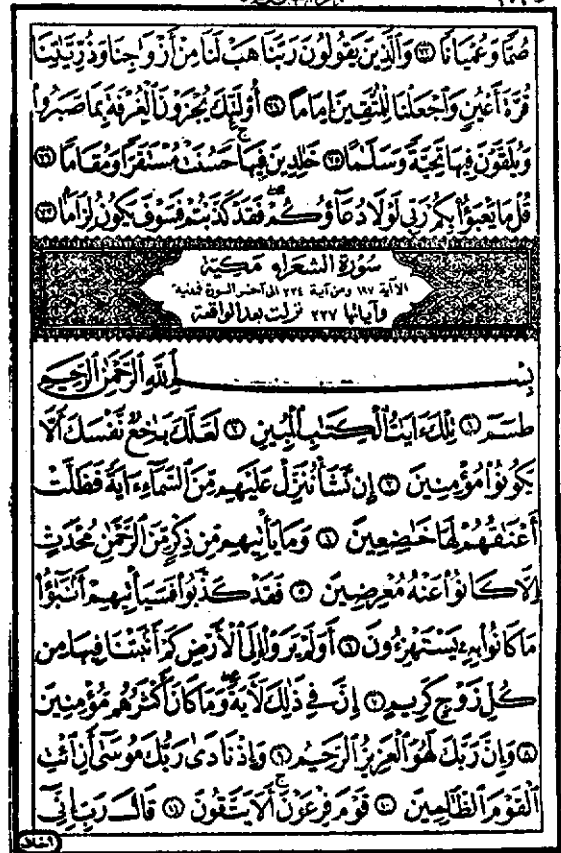 صُمًّا وَعُمْيَانًا ۝٧٣ وَالَّذِينَ يَقُولُونَ رَبَّنَا هَبْ لَنَا مِنْ أَزْوَٰجِنَا وَذُرِّيَّٰتِنَا
قُرَّةَ أَعْيُنٍ وَاجْعَلْنَا لِلْمُتَّقِينَ إِمَامًا ۝٧٤ أُوْلَٰٓئِكَ يُجْزَوْنَ الْغُرْفَةَ بِمَا صَبَرُوا
وَيُلَقَّوْنَ فِيهَا تَحِيَّةً وَسَلَٰمًا ۝٧٥ خَٰلِدِينَ فِيهَا حَسُنَتْ مُسْتَقَرًّا وَمُقَامًا ۝٧٦
قُلْ مَا يَعْبَؤُا بِكُمْ رَبِّي لَوْلَا دُعَآؤُكُمْ فَقَدْ كَذَّبْتُمْ فَسَوْفَ يَكُونُ لِزَامًا ۝٧٧
سورة الشعراء مكية
الا آية ١٩٧ ومن آية ٢٢٤ الى آخر السورة فمدنية
وآياتها ٢٢٧ نزلت بعد الواقعة
بِسْمِ اللَّهِ الرَّحْمَٰنِ الرَّحِيمِ
طسٓمٓ ۝١ تِلْكَ ءَايَٰتُ الْكِتَٰبِ الْمُبِينِ ۝٢ لَعَلَّكَ بَٰخِعٌ نَّفْسَكَ أَلَّا
يَكُونُوا مُؤْمِنِينَ ۝٣ إِن نَّشَأْ نُنَزِّلْ عَلَيْهِم مِّنَ السَّمَآءِ ءَايَةً فَظَلَّتْ
أَعْنَٰقُهُمْ لَهَا خَٰضِعِينَ ۝٤ وَمَا يَأْتِيهِم مِّن ذِكْرٍ مِّنَ الرَّحْمَٰنِ مُحْدَثٍ
إِلَّا كَانُوا عَنْهُ مُعْرِضِينَ ۝٥ فَقَدْ كَذَّبُوا فَسَيَأْتِيهِمْ أَنۢبَٰٓؤُا
مَا كَانُوا بِهِۦ يَسْتَهْزِءُونَ ۝٦ أَوَلَمْ يَرَوْا إِلَى الْأَرْضِ كَمْ أَنۢبَتْنَا فِيهَا مِن
كُلِّ زَوْجٍ كَرِيمٍ ۝٧ إِنَّ فِي ذَٰلِكَ لَءَايَةً وَمَا كَانَ أَكْثَرُهُم مُّؤْمِنِينَ
۝٨ وَإِنَّ رَبَّكَ لَهُوَ الْعَزِيزُ الرَّحِيمُ ۝٩ وَإِذْ نَادَىٰ رَبُّكَ مُوسَىٰٓ أَنِ ائْتِ
الْقَوْمَ الظَّٰلِمِينَ ۝١٠ قَوْمَ فِرْعَوْنَ أَلَا يَتَّقُونَ ۝١١ قَالَ رَبِّ إِنِّي